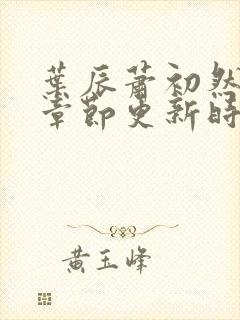 葉辰蕭初然
章節更新時
黃玉峰